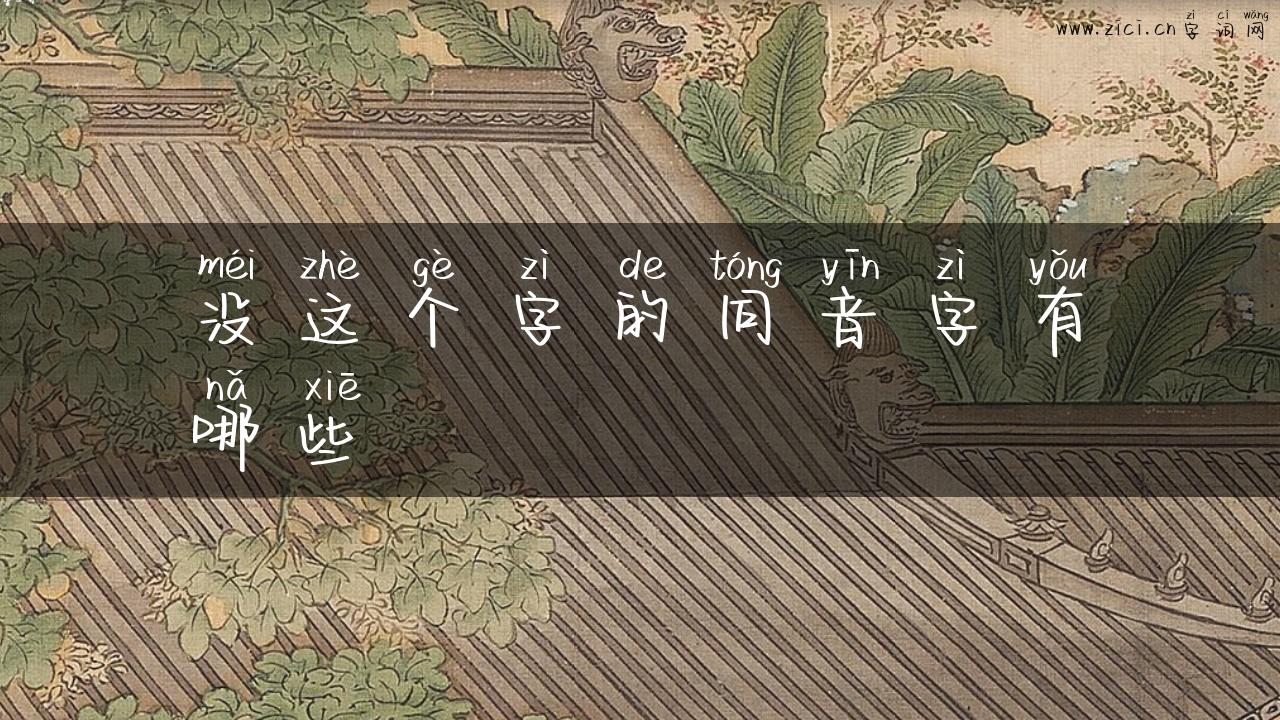 zì cí wǎng
www.zici.cn 字 词 网
méi zhè gè zì de tóng yīn zì yǒu
没 这 个 字 的 同 音 字 有
nǎ xiē
哪 些